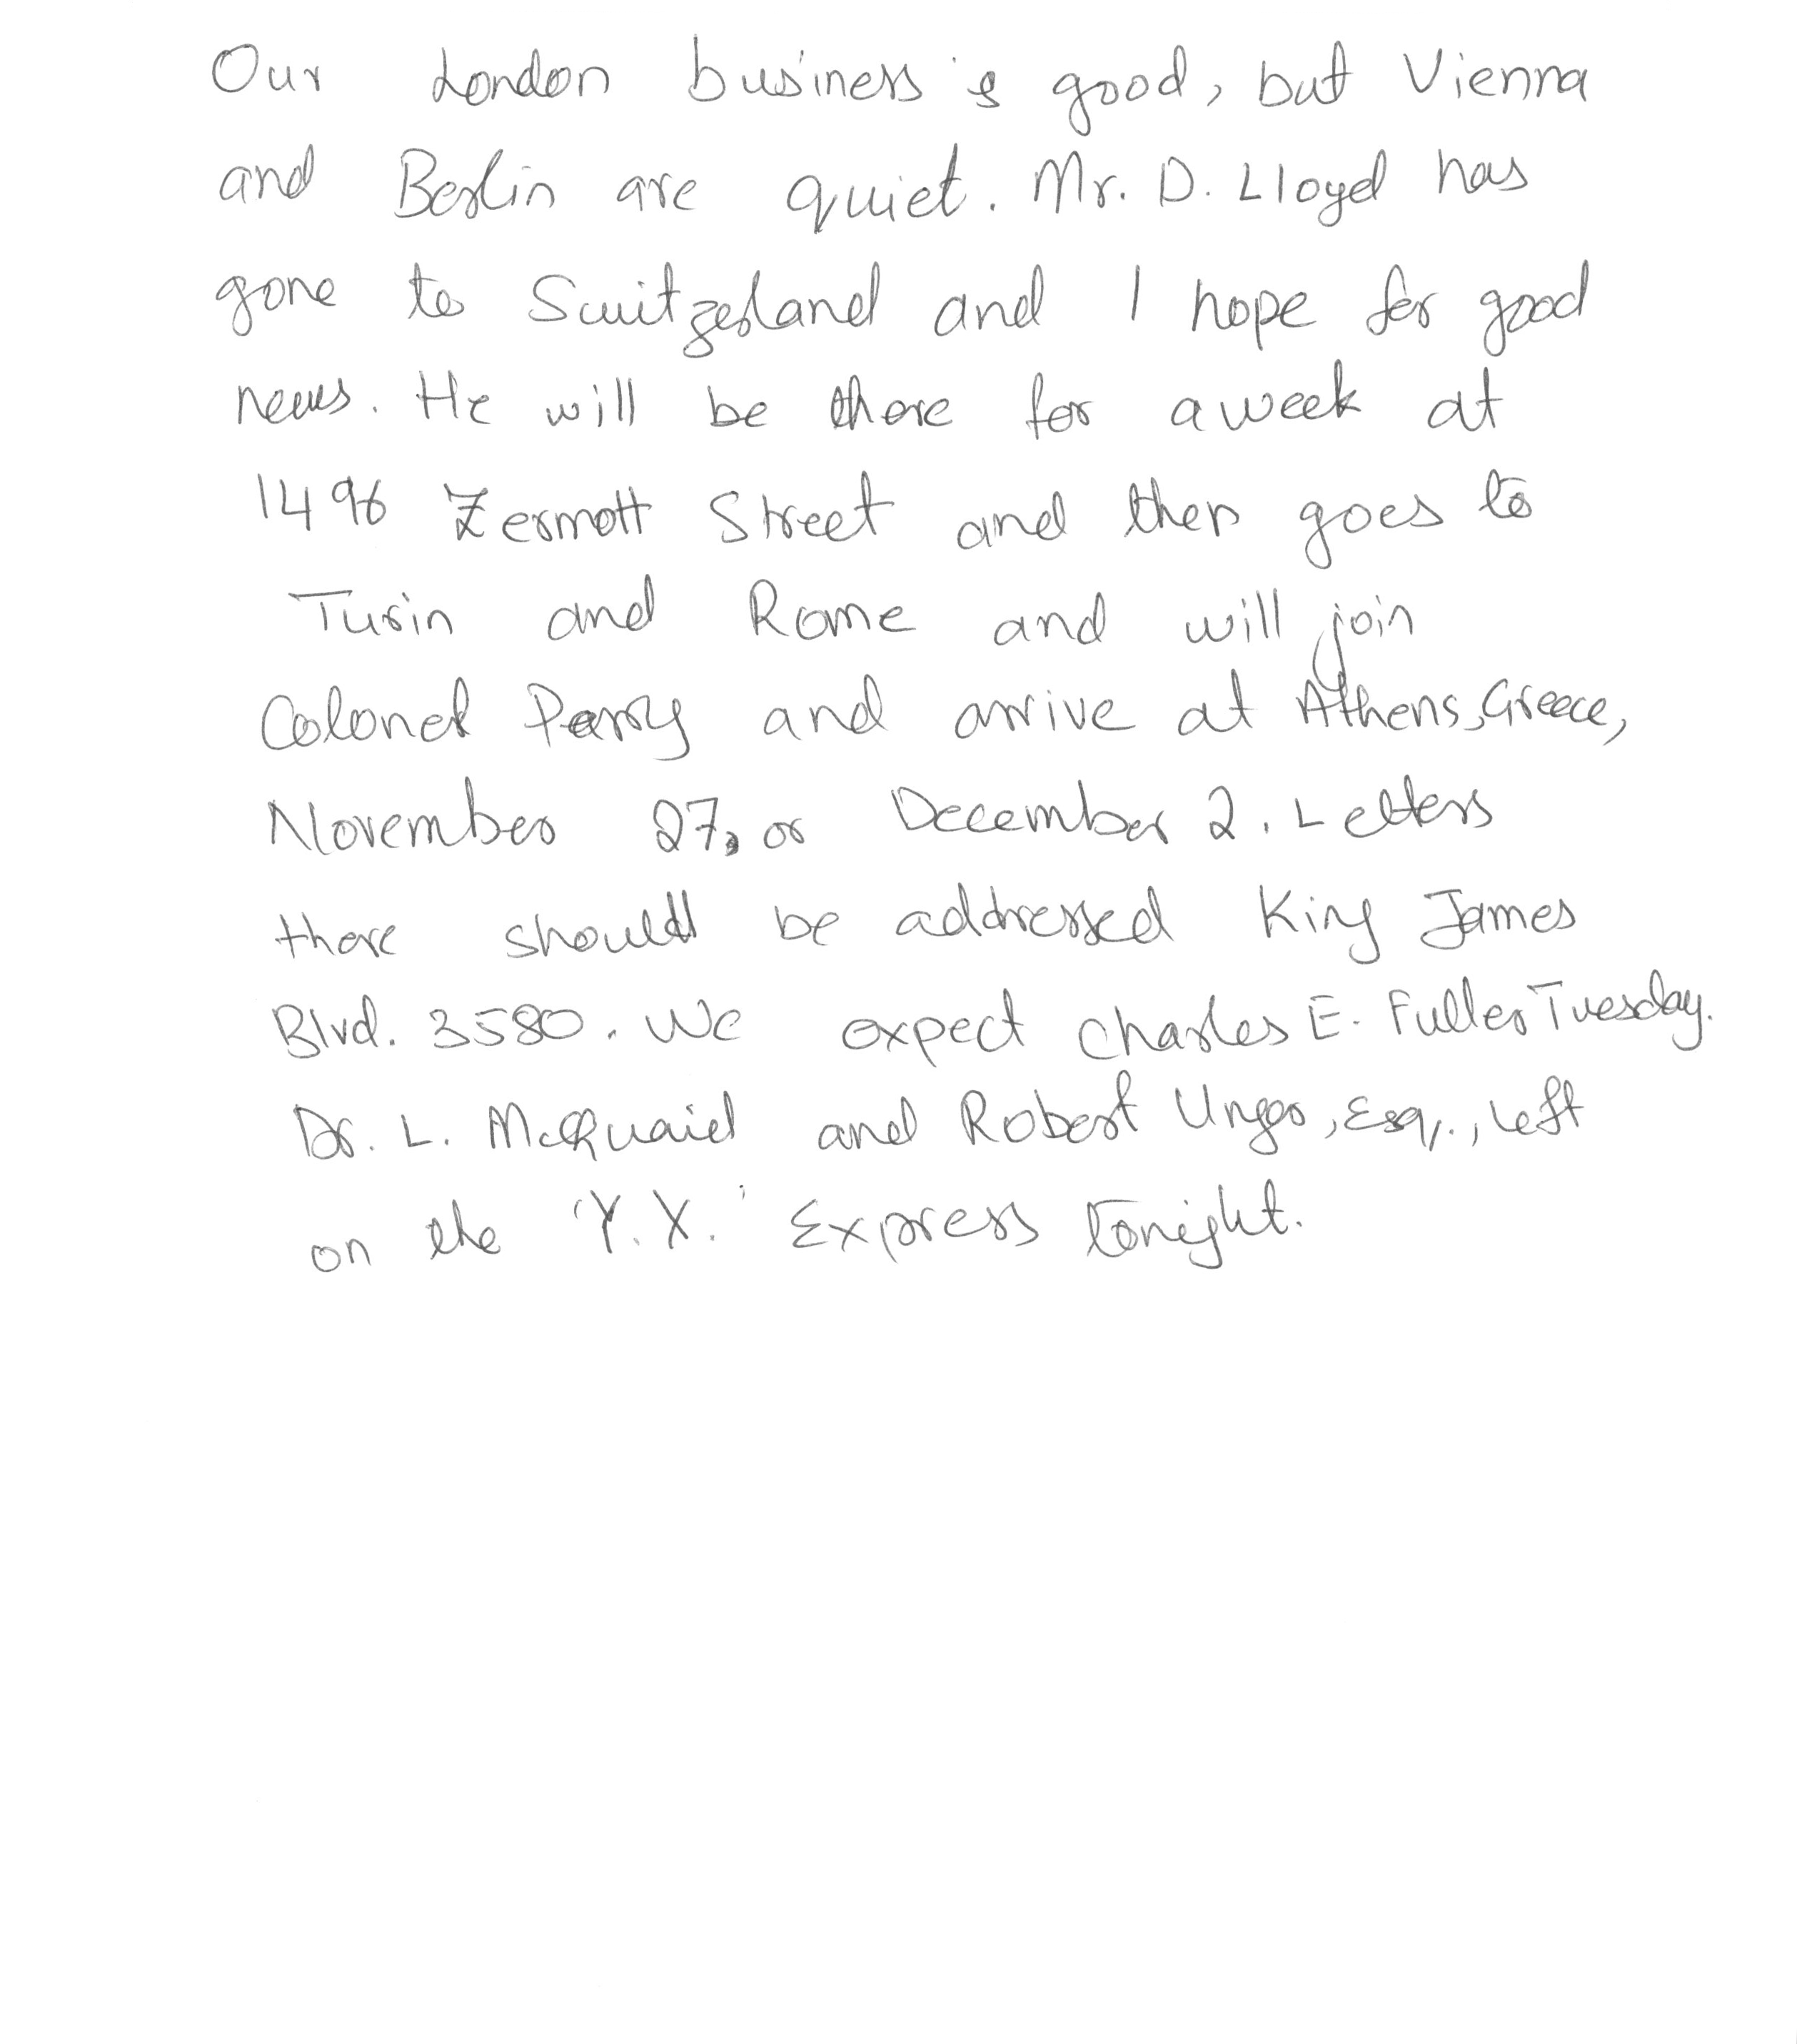 Our London business is good, but Vienna
and Berlin are quiet. Mr. D. Lloyd has
gone to Switzerland and I hope for good
news. He will be there for a week at
1496 Zermott Street and then goes to
Turin and Rome and will join
Colonel Parry and arrive at Athens, Greece,
November 27, or December 2. Letters
there should be addressed King James
Blvd. 3580. We expect Charles E. Fuller Tuesday.
Dr. L. McQuaid and Robert Unger, Esq., left
on the 'Y.X.' Express tonight.